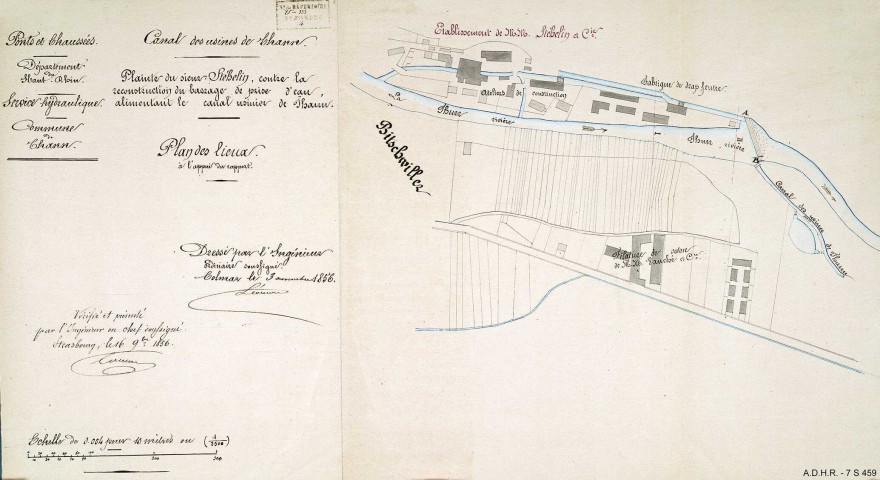 Ponts et Chaussées.
Département
du
Haut-Rhin.
Service hydraulique.
Commune
de
Thann.
Canal des usines de Thann.
Plainte du sieur Stébelin, contre la
reconstruction du barrage de prise d'eau,
alimentant le canal usinier de Thann.
Plan des lieux.
à l'appui du rapport.
Dressé par l'Ingénieur
ordinaire soussigné.
Colmar le 3 novembre 1856.
Vérifié et présenté
par l'Ingénieur en chef soussigné
Strasbourg, le 16 9bre 1856.
Echelle de 0.004 pour 10 mètres ou (1/2500)
Etablissement de M.M. Stébelin et Cie.
Fabrique de drap feutre.
Ateliers de construction
La Thur rivière
Thur rivière
A
B
Bitschwiller
Canal des usines de Thann
Filature de coton
de M.M. et Cie.
A.D.H.R. - 7 S 459